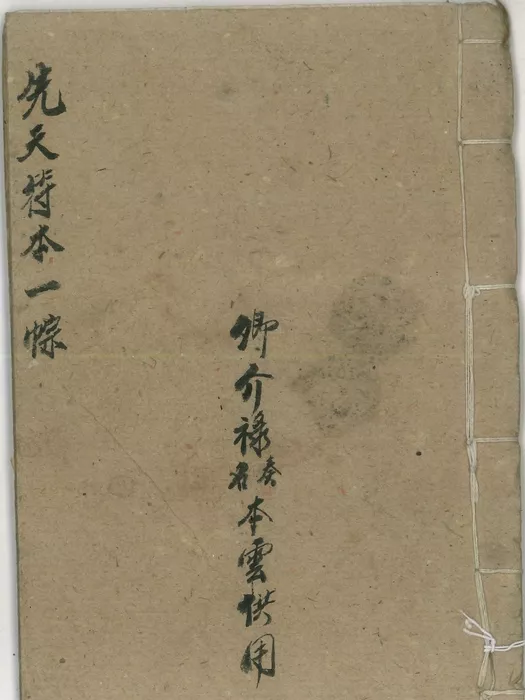 卿介禄奏名本雲供用
先天符本一悰